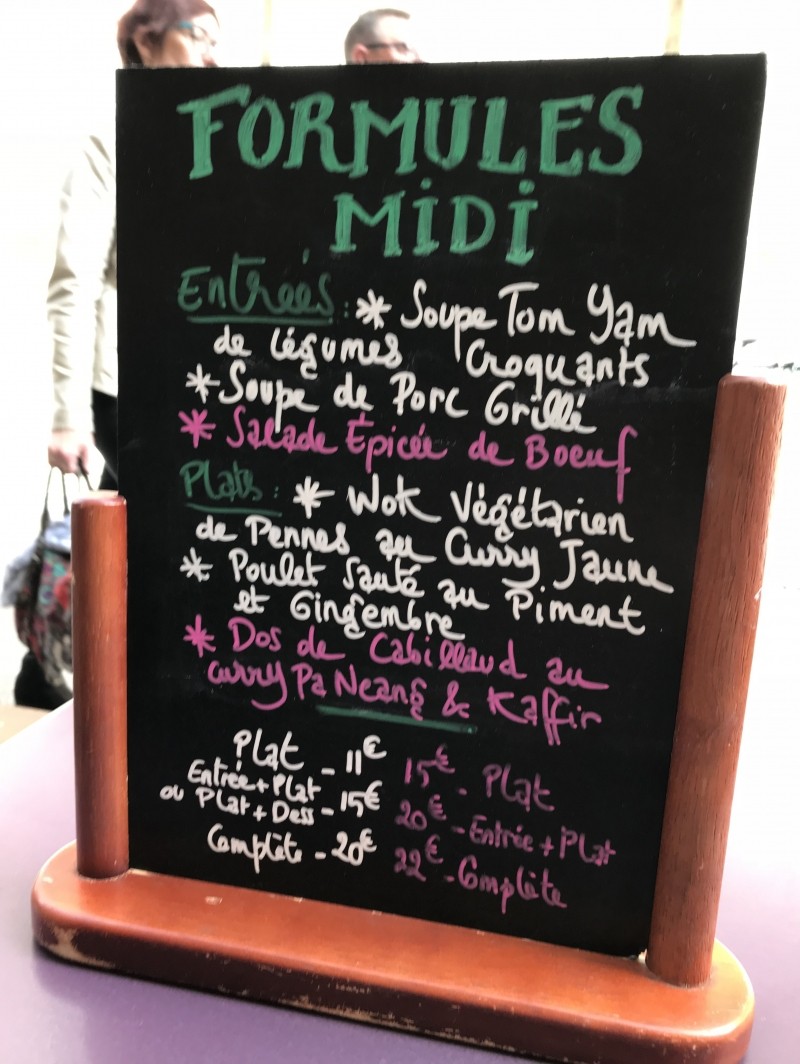 FORMULES
MIDI
Entrées : * Soupe Tom Yam
de légumes Croquants
* Soupe de Porc Grillé
* Salade Épicée de Boeuf
Plats : * Wok Végétarien
de Pennes au Curry Jaune
* Poulet Sauté au Piment
et Gingembre
* Dos de Cabillaud au
curry Pa Neang & Kaffir
Plat - 11€
Entrée + Plat
ou Plat + Dess - 15€
Complète - 20€
15€ - Plat
20€ - Entrée + Plat
22€ - Complète